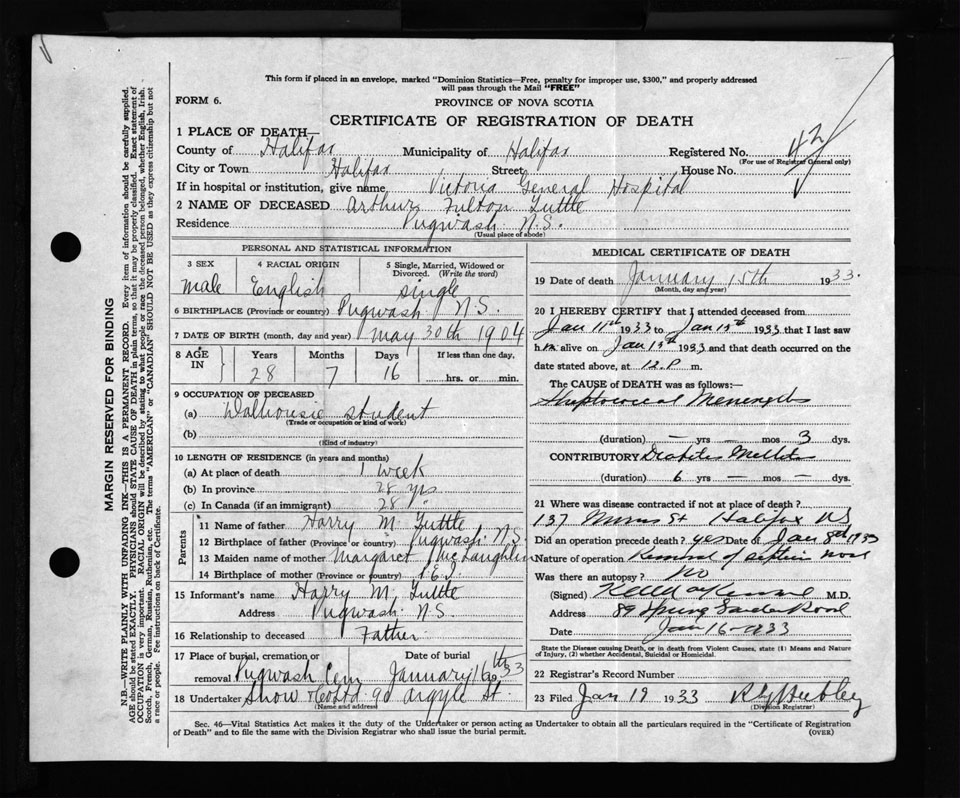 This form if placed in an envelope, marked "Dominion Statistics—Free, penalty for improper use, $300," and properly addressed
will pass through the Mail "FREE"
FORM 6.
PROVINCE OF NOVA SCOTIA
CERTIFICATE OF REGISTRATION OF DEATH
1 PLACE OF DEATH—
County of Halifax Municipality of Halifax Registered No. 42
(For use of Registrar General only)
City or Town Halifax Street House No.
If in hospital or institution, give name Victoria General Hospital
2 NAME OF DECEASED Arthur Fulton Tuttle
Residence Pugwash N.S.
(Usual place of abode)
PERSONAL AND STATISTICAL INFORMATION
3 SEX 4 RACIAL ORIGIN 5 Single, Married, Widowed or
Divorced. (Write the word)
male English single
6 BIRTHPLACE (Province or country) Pugwash N.S.
7 DATE OF BIRTH (month, day and year) May 30th 1904
8 AGE IN Years Months Days If less than one day,
28 7 16 hrs. or min.
9 OCCUPATION OF DECEASED
(a) Dalhousie student
(Trade or occupation or kind of work)
(b)
(Kind of industry)
10 LENGTH OF RESIDENCE (in years and months)
(a) At place of death 1 week
(b) In province 28 yrs
(c) In Canada (if an immigrant) 28 "
Parents
11 Name of father Harry M Tuttle
12 Birthplace of father (Province or country) Pugwash N.S.
13 Maiden name of mother Margaret McLaughlin
14 Birthplace of mother (Province or country)
15 Informant's name Harry M. Tuttle
Address Pugwash N.S.
16 Relationship to deceased Father
17 Place of burial, cremation or Date of burial
removal Pugwash Cem January 16th 1933
18 Undertaker Snow & Co Ltd 90 Argyle St.
(Name and address)
MEDICAL CERTIFICATE OF DEATH
19 Date of death January 15th 1933.
(Month, day and year)
20 I HEREBY CERTIFY that I attended deceased from
Jan 11th 1933 to Jan 15th 1933 that I last saw
him alive on Jan 15th 1933 and that death occurred on the
date stated above, at 12.P m.
The CAUSE of DEATH was as follows:
Streptococcal Meningitis
(duration) — yrs — mos 3 dys.
CONTRIBUTORY Diabetes Mellitus
(duration) 6 yrs — mos — dys.
21 Where was disease contracted if not at place of death?
137 St Halifax NS
Did an operation precede death? yes Date of Jan 8th 1933
Nature of operation Removal of septum nose
Was there an autopsy? no
(Signed) M.D.
Address 89 Spring Garden Road
Date Jan 16-1933
State the Disease causing Death, or in death from Violent Causes, state (1) Means and Nature
of Injury, (2) whether Accidental, Suicidal or Homicidal.
22 Registrar's Record Number
23 Filed Jan 19 1933
(Division Registrar)
Sec. 46—Vital Statistics Act makes it the duty of the Undertaker or person acting as Undertaker to obtain all the particulars required in the "Certificate of Registration
of Death" and to file the same with the Division Registrar who shall issue the burial permit. (OVER)
MARGIN RESERVED FOR BINDING
N.B.—WRITE PLAINLY WITH UNFADING INK—THIS IS A PERMANENT RECORD. Every item of information should be carefully supplied.
AGE should be stated EXACTLY. PHYSICIANS should STATE CAUSE OF DEATH in plain terms, so that it may be properly classified. Exact statement of
OCCUPATION is very important. RACIAL ORIGIN will be described by stating to what people or race the deceased person belonged, whether English, Irish,
Scotch, French, German, Russian, Ruthenian, etc. The terms "AMERICAN" or "CANADIAN" SHOULD NOT BE USED as they express citizenship but not
a race or people. Fee instructions on back of Certificate.